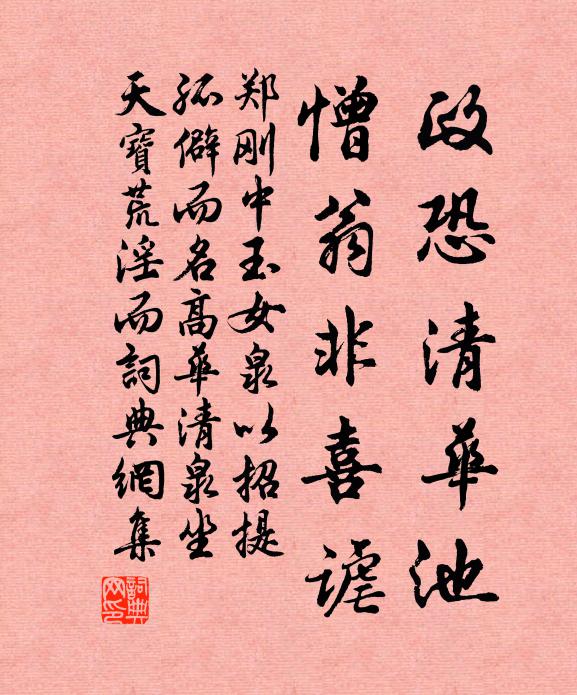 政恐清華池
憎翁非喜謔
郑刚中玉女泉以招提
孤僻而名高華清泉坐
天寶荒淫而詞典網集
詞典网印